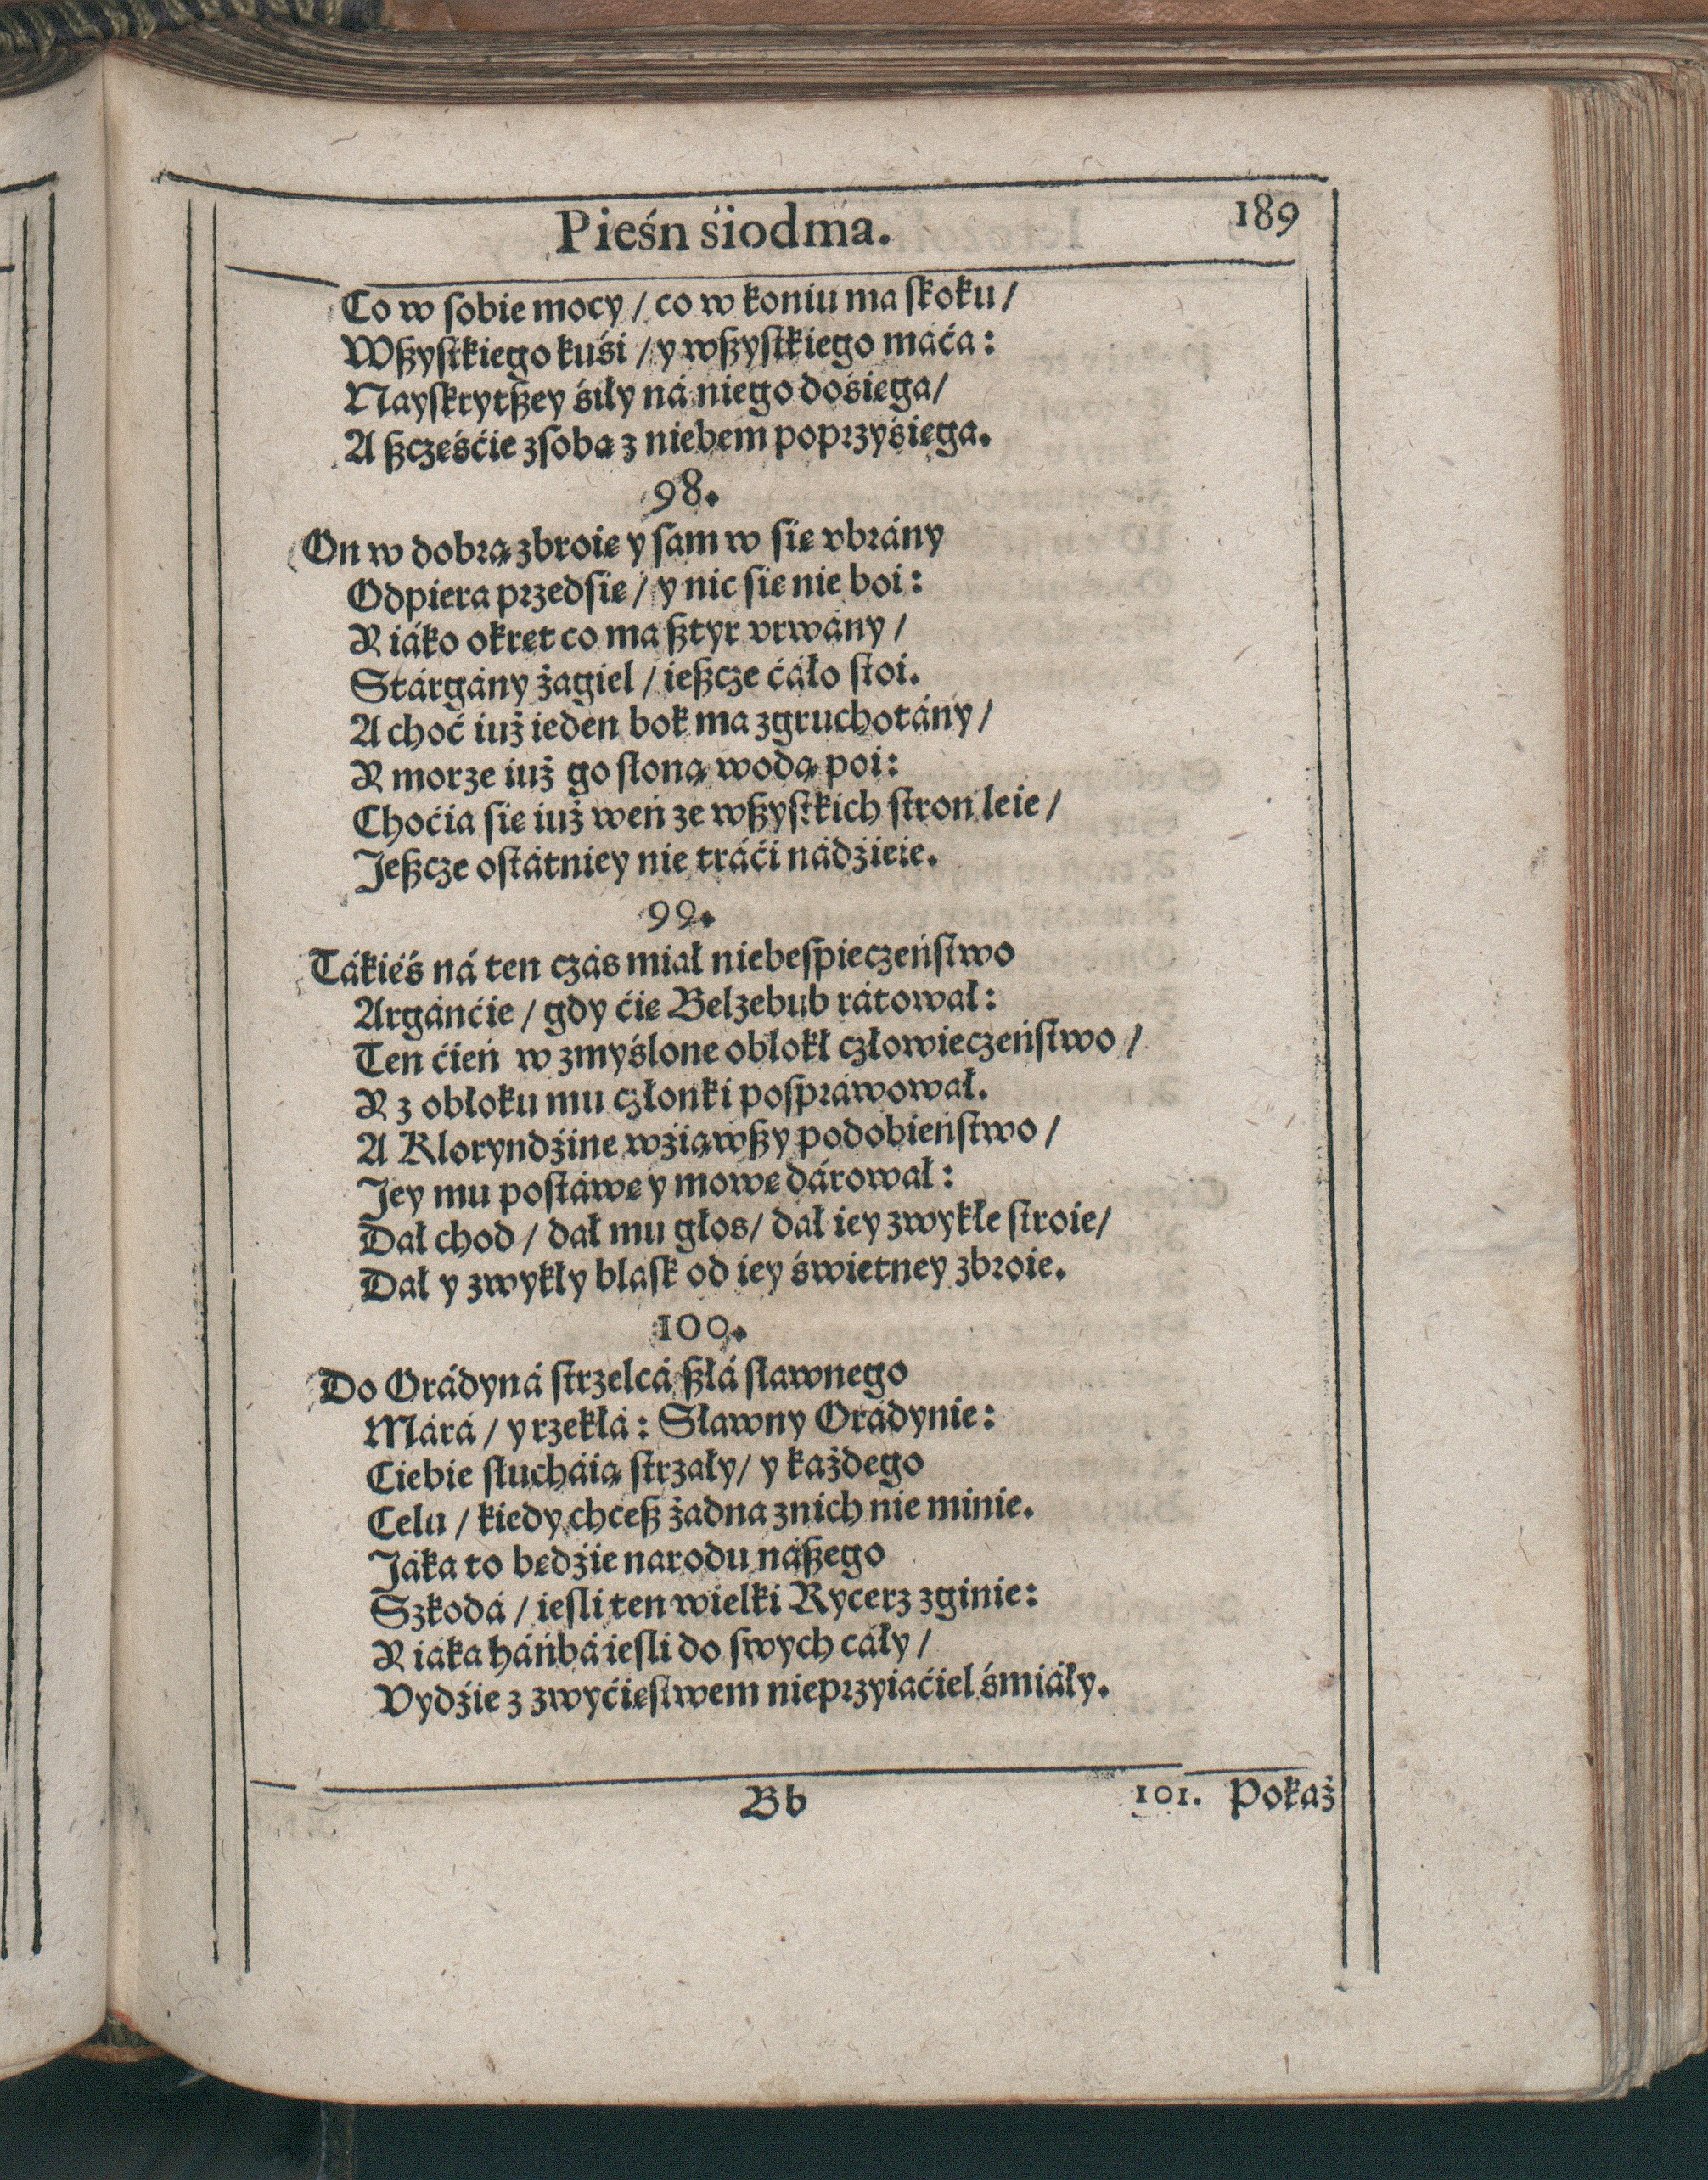 Pieśń siodma.
189
Co w ſobie mocy / co w koniu ma ſkoku /
Wßyſtkiego kuśi / y wßyſtkiego máca:
Nayſkrytßey śiły ná niego dośięga /
A ßczęśćie zſobą z niebem poprzyśięga.
98.
On w dobrą zbroię y ſam w ſię vbrány
Odpiera przedſię / y nic ſię nie boi:
Y iáko okręt co ma ßtyr vrwány /
Stárgány żagiel / ießcze ćáło ſtoi.
A choć iuż ieden bok ma zgruchotány /
Y morze iuż go ſłoną wodą poi:
Choćia ſię iuż weń ze wßyſtkich ſtron leie /
Jeßcze oſtátniey nie tráći nádźieie.
99.
Tákieś ná ten czás miał niebeſpieczeńſtwo
Argánćie / gdy ćię Belzebub rátował:
Ten ćień w zmyślone oblokł człowieczeńſtwo /
Y z obłoku mu członki poſpráwował.
A Kloryndźine wźiąwßy podobieńſtwo /
Jey mu poſtáwę y mowę dárował:
Dał chod / dał mu głos / dał iey zwykłe ſtroie /
Dał y zwykły blaſk od iey świetney zbroie.
100.
Do Orádyná ſtrzelcá ßłá ſławnego
Márá / y rzekłá: Sławny Orádynie:
Ciebie ſłucháią ſtrzały / y każdego
Celu / kiedy chceß żadna znich nie minie.
Jáka to będźie narodu náßego
Szkodá / ieſli ten wielki Rycerz zginie:
Y iáka háńbá ieſli do ſwych cáły /
Vydźie z zwyćięſtwem nieprzyiaćiel śmiáły.
Bb
101. Pokaż